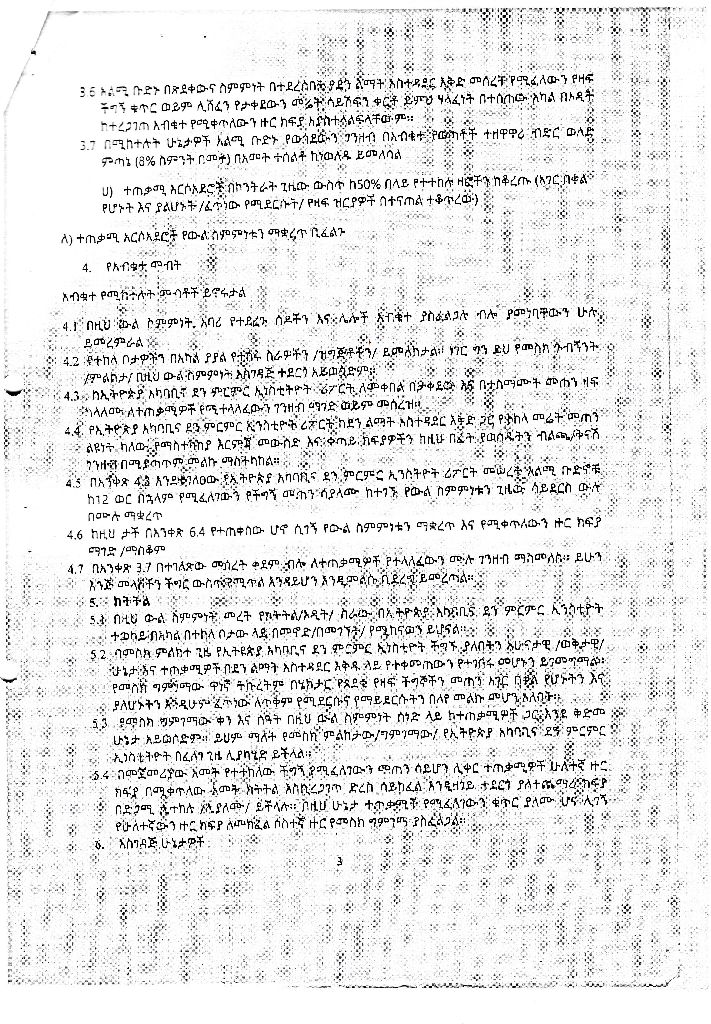 3.6 አልሚ ቡድኑ በጸደቀውና ስምምነት በተደረሰበት የደን ልማት አስተዳደር እቅድ መሰረት የሚፈለውን የዛፍ
ችግኝ ቁጥር ወይም ሊሸፈን የታቀደውን መሬት ሳይሸፍን ቀርቶ ይምህ ሃላፊነት በተሰጠው አካል በኦዲት
ከተረጋገጠ አብቁተ የሚቀጥለውን ዙር ክፍያ አያስተላልፍላቸውም።
3.7 በሚከተሉት ሁኔታዎች አልሚ ቡድኑ የወሰደውን ገንዘብ በአብቁተ የወጣቶች ተዘዋዋሪ ብድር ወለድ
ምጣኔ (8% ስምንት በመቶ) በአመት ተሰልቶ ከነወለዱ ይመለሳል
ሀ) ተጠቃሚ አርሶአደሮች በኮንትራት ጊዜው ውስጥ ከ50% በላይ የተተከሉ ዛፎችን ከቆረጡ (አገር በቀል
የሆኑት እና ያልሆኑት /ፈጥነው የሚደርሱት/ የዛፍ ዝርያዎች በተናጠል ተቆጥረው)
ለ) ተጠቃሚ አርሶአደሮች የውል ስምምነቱን ማቋረጥ ቢፈልጉ
4. የአብቁተ መብት
አብቁተ የሚከተሉት መብቶች ይኖሩታል
4.1 በዚህ ውል ስምምነት አባሪ የተደረጉ ሰዶችን እና ሌሎች አብቁተ ያስፈልጋሉ ብሎ ያመነባቸውን ሁሉ
ይመረምራል
4.2 የተከለ ቦታዎችን በአካል ያያል የቢሮ ስራዎችን /ዝግጅቶችን/ ይመለከታል። ነገር ግን ይህ የመስክ ጉብኝንት
/ምልከታ/ በዚህ ውል ስምምነት አስገዳጅ ተደርጎ አይወሰድም።
4.3 ከኢትዮጵያ አካባቢና ደን ምርምር ኢንስቲትዮት ሪፖርት ለመቀበል በታቀደው እና በተስማሙት መጠን ዛፍ
ካላለሙ ለተጠቃሚዎች የሚተላለፈውን ገንዘብ ማገድ ወይም መሰረዝ።
4.4 የኢትዮጵያ አካባቢና ደን ምርምር ኢንስቲዮት ሪፖርት ከደን ልማት አስተዳደር እቅድ ጋር የተከላ መሬት መጠን
ልዩነት ካለው የማስተካከያ እርምጃ መውሰድ እና ቀጣይ ክፍያዎችን ከዚህ በፊት የወሰዱትን ብልጫ/ትናሽ
ገንዘብ በሚያጣጥም መልኩ ማስተካከል።
4.5 በአንቀጽ 4.3 እንደተገለፀው የኢትዮጵያ አካባቢና ደን ምርምር ኢንስትዮት ሪፖርት መሠረት አልሚ ቡድኖቹ
ከ12 ወር በኋላም የሚፈለገውን የችግኝ መጠን ሳያለሙ ከተገኙ የውል ስምምነቱን ጊዜው ሳይደርስ ውሉ
በመሉ ማቋረጥ
4.6 ከዚህ ታች በአንቀጽ 6.4 የተጠቀሰው ሆኖ ሲገኝ የውል ስምምነቱን ማቋረጥ እና የሚቀጥለውን ዙር ክፍያ
ማገድ /መስቆም
4.7 በአንቀጽ 3.7 በተገለጽው መሰረት ቀደም ብሎ ለተጠቃሚዎች የተላለፈውን ሙሉ ገንዘብ ማስመለስ። ይሁን
እንጅ መላሾችን ችግር ውስጥ በሚጥል እንዳይሆን እንዲመልሱ ቢደረግ ይመረጣል።
5. ክትትል
5.1 በዚህ ውል ስምምነት መረት የክትትል/ኦዲት/ ስራው በኢትዮጵያ አካባቢና ደን ምርምር ኢንስቲዮት
ተወካይ በአካል በተከለ ቦታው ላይ በመኖድ/በመገኘት/ የሚከናወን ይሆናል።
5.2 በመስክ ምልከተ ጊዜ የኢትዩጵያ አካባቢና ደን ምርምር ኢንስቲዮት ችግኙ ያለበትን አሁናታዊ /ወቅታዊ/
ሁኔታ እና ተጠቃሚዎች በደን ልማት አስተዳደር እቅዱ ላይ የተቀመጠውን የተገበሩ መሆኑን ይገመግማል።
የመስክ ግምገማው ዋነኛ ትኩረትም በሄክታር የጸደቁ የዛፍ ችግኞችን መጠን አገር በቀል የሆኑትን እና
ያልሆኑትን እንዲሁም ፈጥነው ለጥቅም የሚደርሱና የማይደርሱትን በለየ መልኩ መሆን አለበት።
5.3 የመስክ ግምገማው ቀን እና ሰዓት በዚህ ውል ስምምነት ሰነድ ላይ ከተጠቃሚዎች ጋር እንደ ቅድመ
ሁኔታ አይወሰድም። ይህም ማለት የመስክ ምልከታው/ግምገማው/ የኢትዮጵያ አካባቢና ደን ምርምር
ኢንስቲትዮት በፈለገ ጊዜ ሊያካሂድ ይችላል።
5.4 በመጀመሪያው አመት የተተከለው ችግኝ የሚፈለገውን መጠን ሳይሆን ሊቀር ተጠቃሚዎች ሁለተኛ ዙር
ክፍያ በሚቀጥለው አመት ክትትል እስኪረጋገጥ ድረስ ሳይከፈል እንዲዘገይ ተደርጎ ያለተጨማሪ ክፍያ
በድጋሚ ሊተከሉ /ሊያለሙ/ ይችላሉ። በዚህ ሁኔታ ተጠቃሚዎች የሚፈለገውን ቁጥር ያለሙ ሆኖ ሲገኝ
የሁለተኛውን ዙር ክፍያ ለመክፈል ሶስተኛ ዙር የመስክ ግምገማ ያስፈልጋል።
6. አስገዳጅ ሁኔታዎች
3